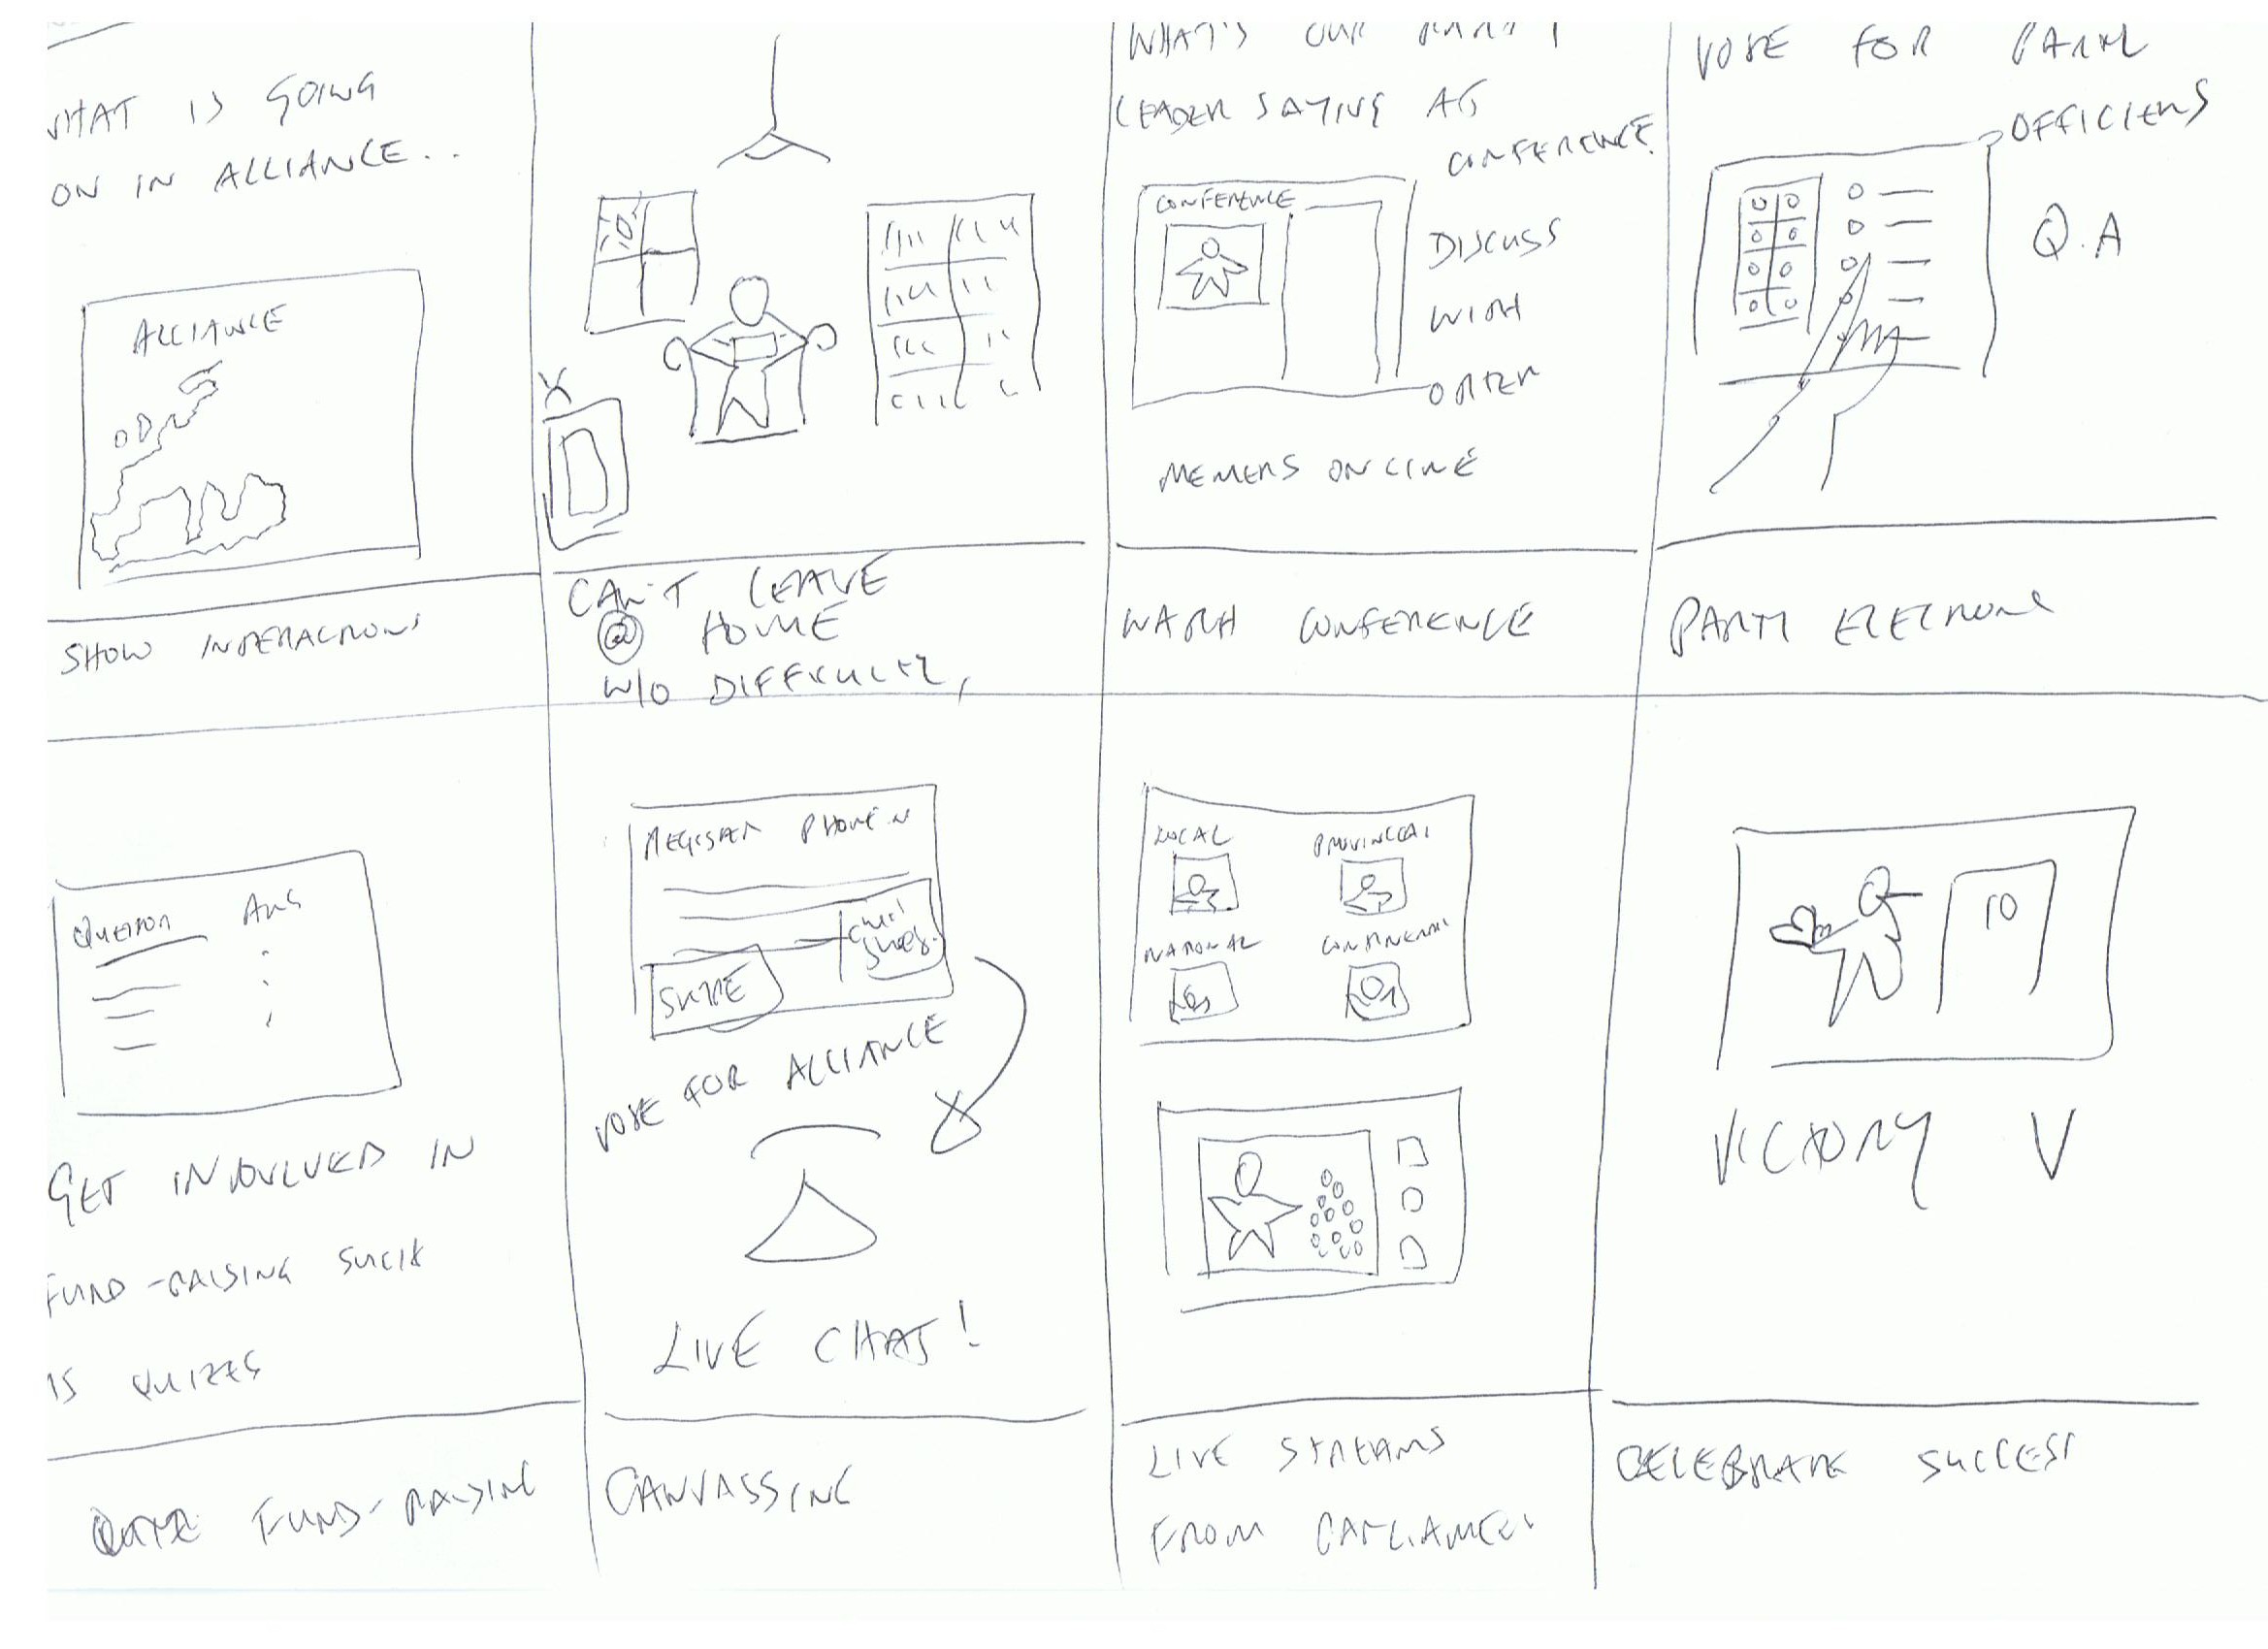 WHAT IS GOING
ON IN ALLIANCE..
ALLIANCE
SHOW INTERACTIONS
CAN'T LEAVE
@ HOME
W/O DIFFICULTY,
WHAT'S OUR PARTY
LEADER SAYING AT
CONFERENCE?
CONFERENCE
DISCUSS
WITH
OTHER
MEMERS ONLINE
WATCH CONFERENCE
VOTE FOR PARTY
OFFICIERS
Q.A
PARTY ELECTIONS
QUESTION ANS
GET INVOLVED IN
FUND-RAISING SUCH
AS QUIZZES
QUIZ FUND-RAISING
REGISTER PHONE IN
SKYPE
VOTE FOR ALLIANCE
LIVE CHAT!
CANVASSING
LOCAL PROVINCIAL
NATIONAL CONTINENTAL
LIVE STREAMS
FROM PARLIAMENT
10
VICTORY V
CELEBRATE SUCCESS